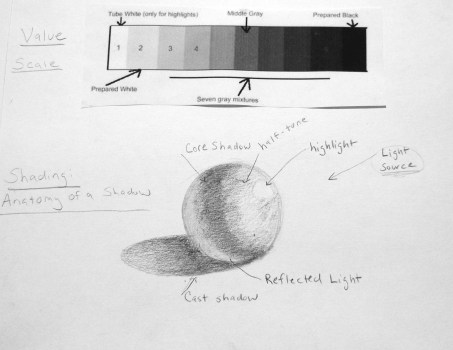 Value
Scale
Tube White (only for highlights)
Middle Gray
Prepared Black
1 2 3 4
Prepared White
Seven gray mixtures
Shading:
Anatomy of a Shadow
Core Shadow
half-tone
highlight
Light
Source
Reflected Light
Cast shadow